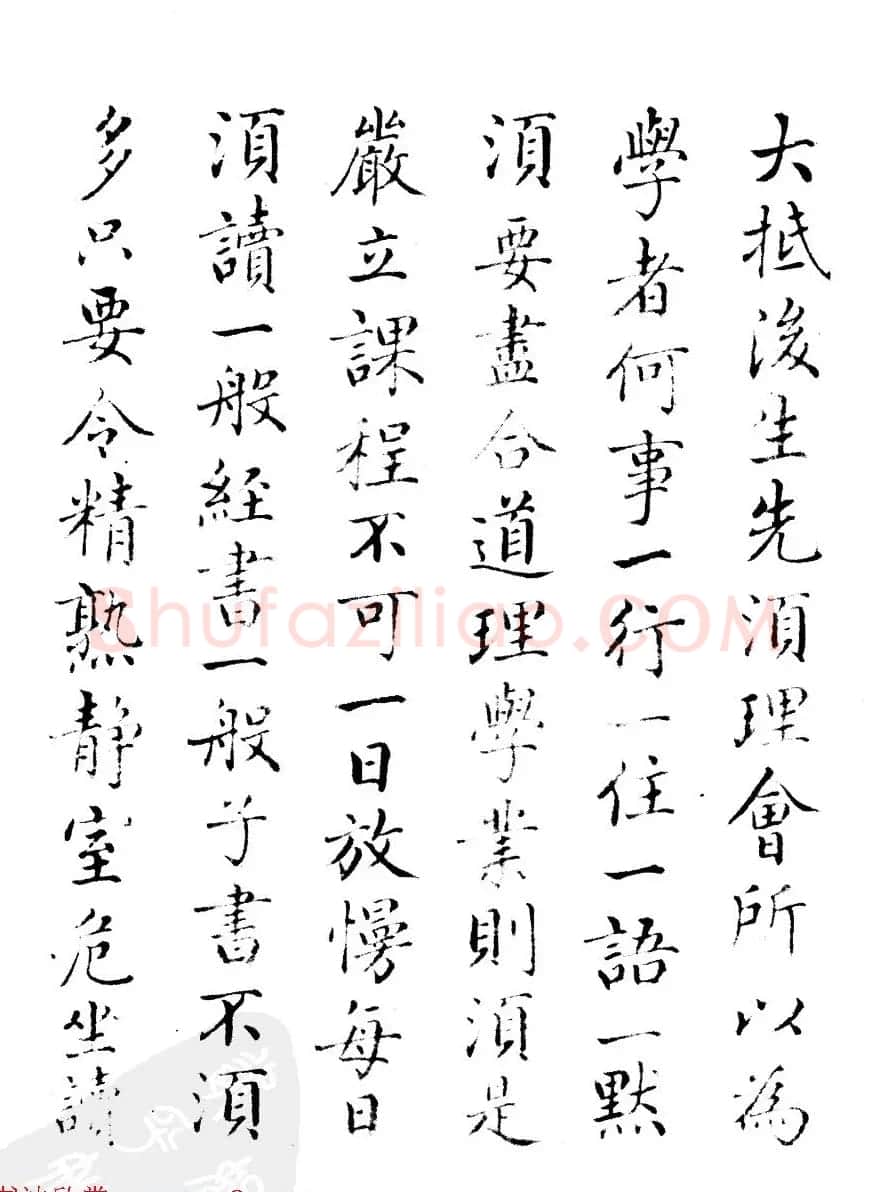 大抵後生先須理會所以為
學者何事一行一住一語一黙
須要盡合道理學業則須是
嚴立課程不可一日放慢每日
須讀一般經書一般子書不須
多只要令精熟静室危坐讀
Shufaziliao.COM